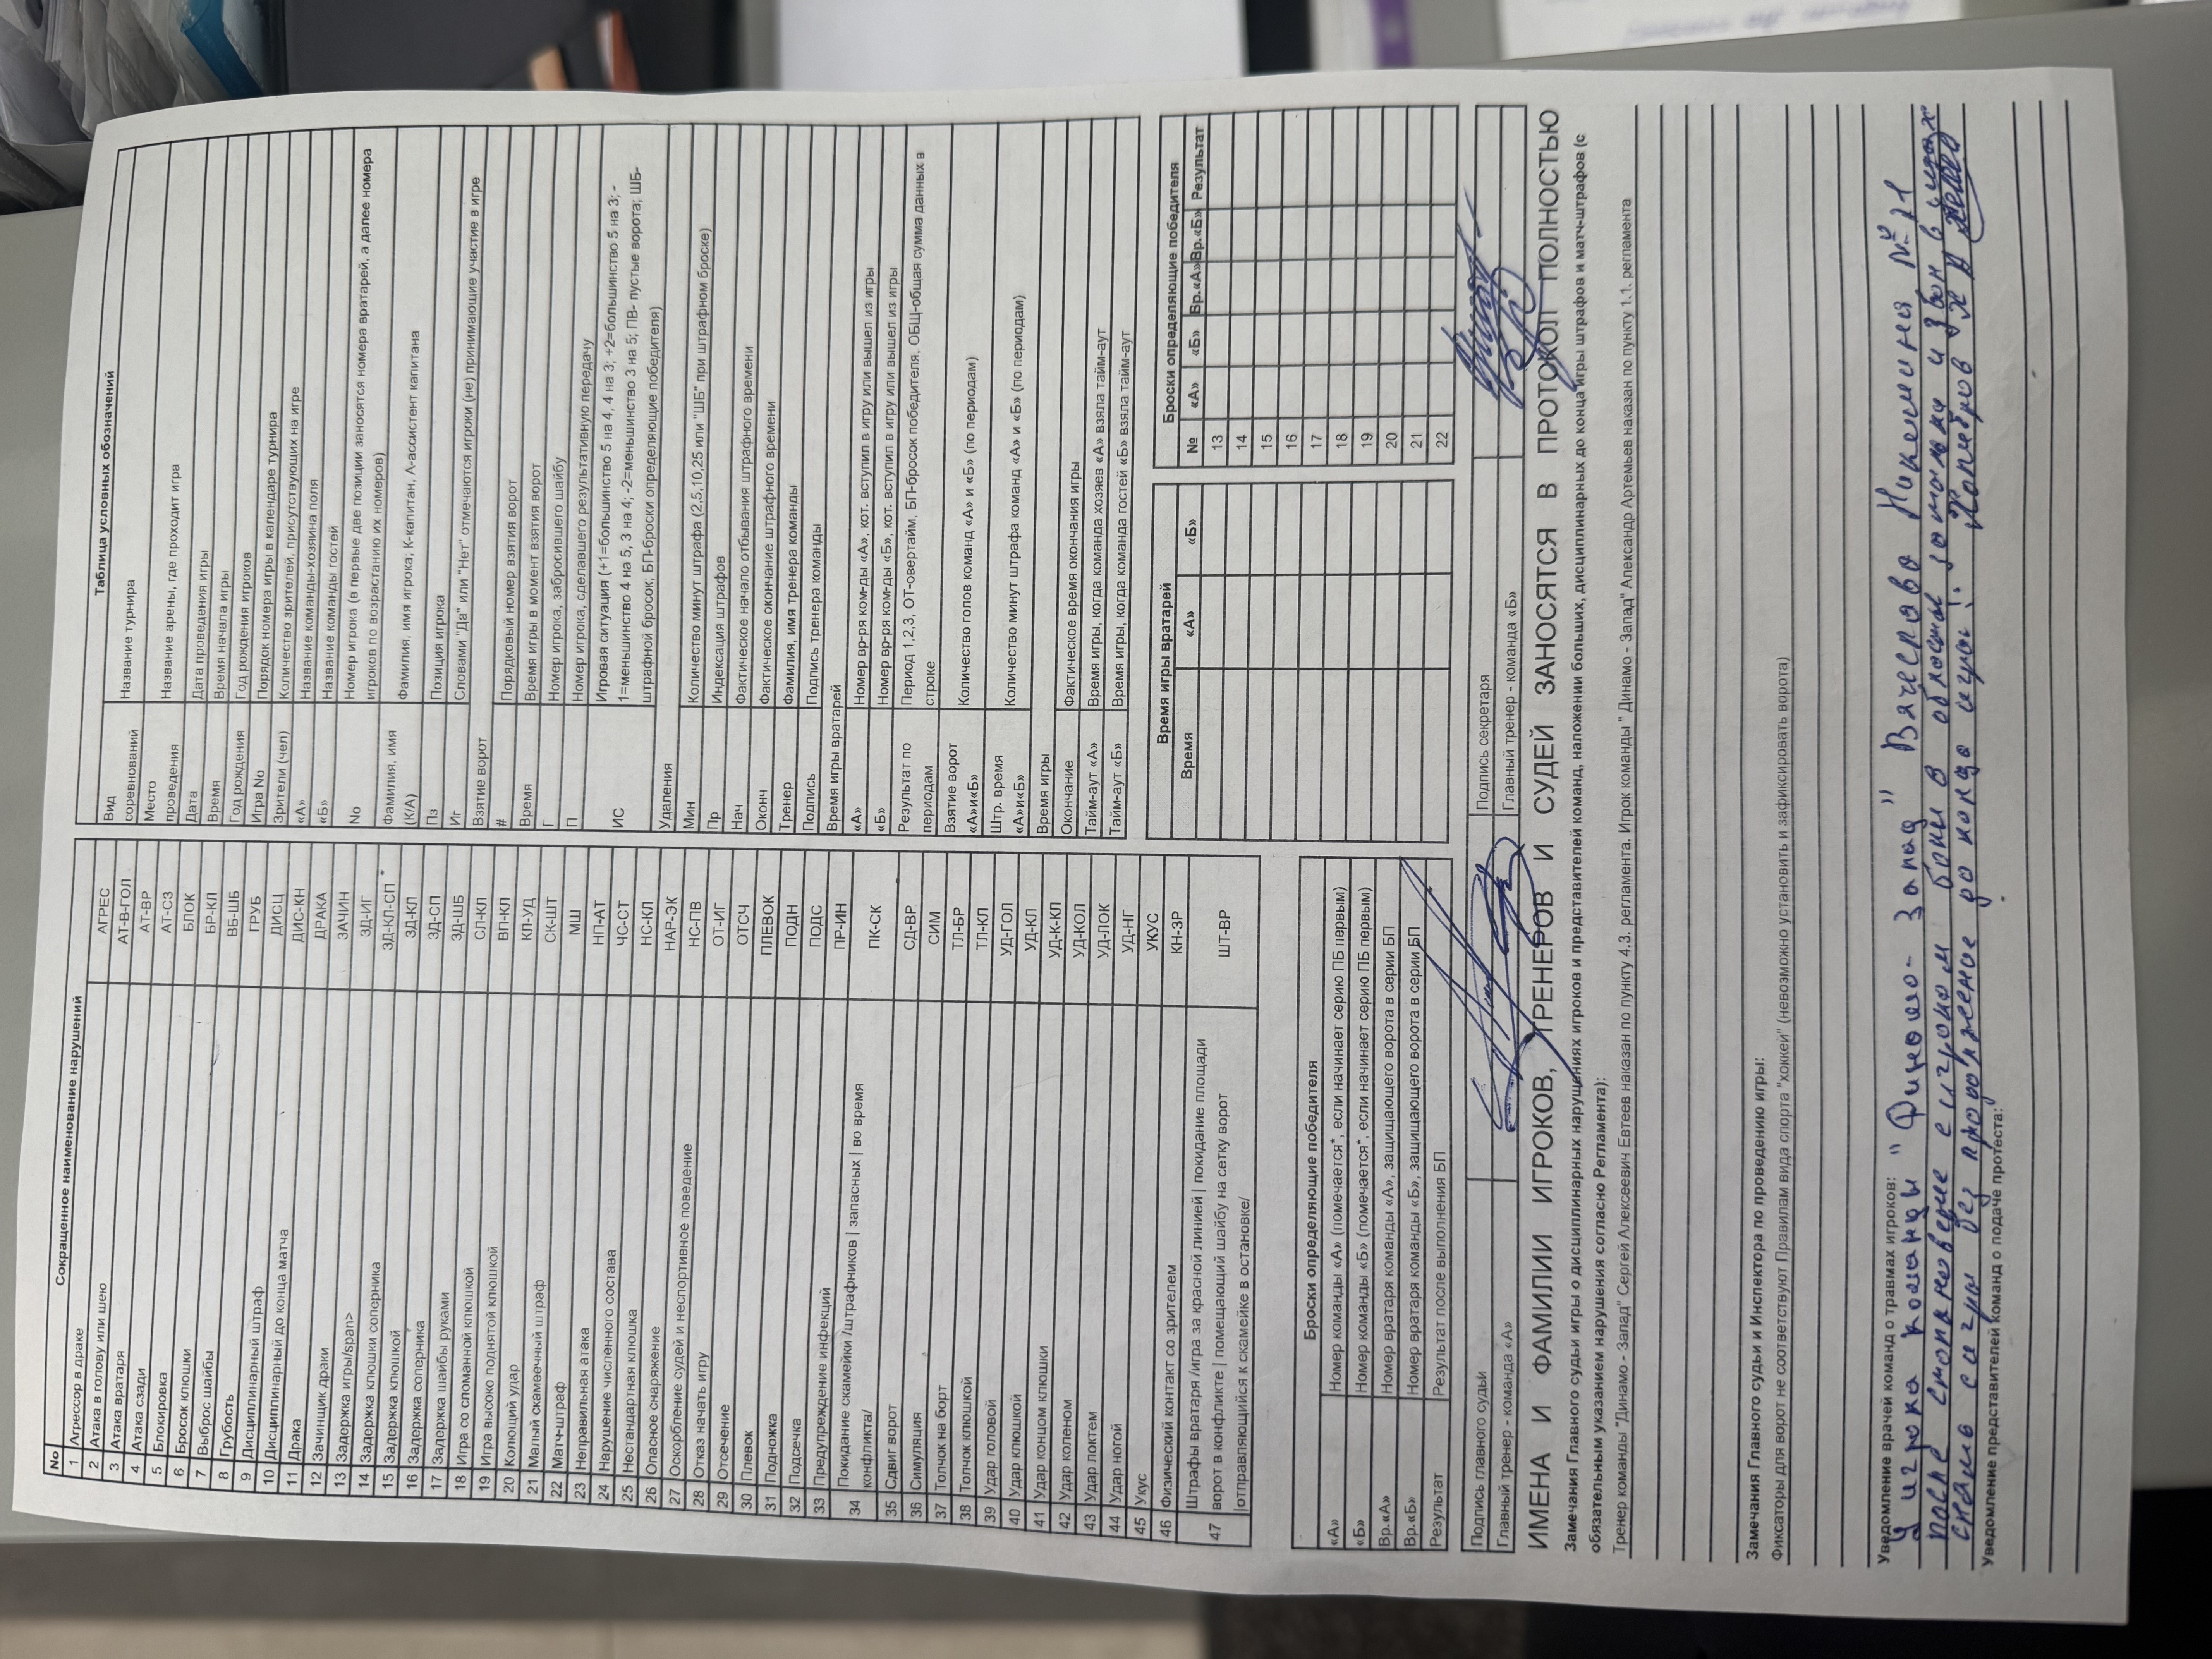 Сокращенное наименование нарушений
No
1 Агрессор в драке АГРЕС
2 Атака в голову или шею АТ-В-ГОЛ
3 Атака вратаря АТ-ВР
4 Атака сзади АТ-СЗ
5 Блокировка БЛОК
6 Бросок клюшки БР-КЛ
7 Выброс шайбы ВБ-ШБ
8 Грубость ГРУБ
9 Дисциплинарный штраф ДИСЦ
10 Дисциплинарный до конца матча ДИС-КН
11 Драка ДРАКА
12 Зачинщик драки ЗАЧИН
13 Задержка игры/span> ЗД-ИГ
14 Задержка клюшки соперника ЗД-КЛ-СП
15 Задержка клюшкой ЗД-КЛ
16 Задержка соперника ЗД-СП
17 Задержка шайбы руками ЗД-ШБ
18 Игра со сломанной клюшкой СЛ-КЛ
19 Игра высоко поднятой клюшкой ВП-КЛ
20 Колющий удар КЛ-УД
21 Малый скамеечный штраф СК-ШТ
22 Матч-штраф МШ
23 Неправильная атака НП-АТ
24 Нарушение численного состава ЧС-СТ
25 Нестандартная клюшка НС-КЛ
26 Опасное снаряжение НАР-ЭК
27 Оскорбление судей и неспортивное поведение НС-ПВ
28 Отказ начать игру ОТ-ИГ
29 Отсечение ОТСЧ
30 Плевок ПЛЕВОК
31 Подножка ПОДН
32 Подсечка ПОДС
33 Предупреждение инфекций ПР-ИН
34 Покидание скамейки /штрафников | запасных | во время конфликта/ ПК-СК
35 Сдвиг ворот СД-ВР
36 Симуляция СИМ
37 Толчок на борт ТЛ-БР
38 Толчок клюшкой ТЛ-КЛ
39 Удар головой УД-ГОЛ
40 Удар клюшкой УД-КЛ
41 Удар концом клюшки УД-К-КЛ
42 Удар коленом УД-КОЛ
43 Удар локтем УД-ЛОК
44 Удар ногой УД-НГ
45 Укус УКУС
46 Физический контакт со зрителем КН-ЗР
47 Штрафы вратаря /игра за красной линией | покидание площади
ворот в конфликте | помещающий шайбу на сетку ворот ШТ-ВР
|отправляющийся к скамейке в остановке/
Таблица условных обозначений
Вид соревнований Название турнира
Место проведения Название арены, где проходит игра
Дата Дата проведения игры
Время Время начала игры
Год рождения Год рождения игроков
Игра No Порядок номера игры в календаре турнира
Зрители (чел) Количество зрителей, присутствующих на игре
«А» Название команды-хозяина поля
«Б» Название команды гостей
No Номер игрока (в первые две позиции заносятся номера вратарей, а далее номера
игроков по возрастанию их номеров)
Фамилия, имя (К/А) Фамилия, имя игрока; К-капитан, А-ассистент капитана
Пз Позиция игрока
Иг Словами "Да" или "Нет" отмечаются игроки (не) принимающие участие в игре
Взятие ворот
# Порядковый номер взятия ворот
Время Время игры в момент взятия ворот
Г Номер игрока, забросившего шайбу
П Номер игрока, сделавшего результативную передачу
ИС Игровая ситуация (+1=большинство 5 на 4, 4 на 3; +2=большинство 5 на 3; -
1=меньшинство 4 на 5, 3 на 4; -2=меньшинство 3 на 5; ПВ- пустые ворота; ШБ-
штрафной бросок; БП-броски определяющие победителя)
Удаления
Мин Количество минут штрафа (2,5,10,25 или "ШБ" при штрафном броске)
Пр Индексация штрафов
Нач Фактическое начало отбывания штрафного времени
Оконч Фактическое окончание штрафного времени
Тренер Фамилия, имя тренера команды
Подпись Подпись тренера команды
Время игры вратарей
«А» Номер вр-ря ком-ды «А», кот. вступил в игру или вышел из игры
«Б» Номер вр-ря ком-ды «Б», кот. вступил в игру или вышел из игры
Результат по периодам Период 1,2,3, ОТ-овертайм, БП-бросок победителя, ОБЩ-общая сумма данных в строке
Взятие ворот «А»и«Б» Количество голов команд «А» и «Б» (по периодам)
Штр. время «А»и«Б» Количество минут штрафа команд «А» и «Б» (по периодам)
Время игры
Окончание Фактическое время окончания игры
Тайм-аут «А» Время игры, когда команда хозяев «А» взяла тайм-аут
Тайм-аут «Б» Время игры, когда команда гостей «Б» взяла тайм-аут
Броски определяющие победителя
«А» Номер команды «А» (помечается*, если начинает серию ПБ первым)
«Б» Номер команды «Б» (помечается*, если начинает серию ПБ первым)
Вр.«А» Номер вратаря команды «А», защищающего ворота в серии БП
Вр.«Б» Номер вратаря команды «Б», защищающего ворота в серии БП
Результат Результат после выполнения БП
Время игры вратарей
Время «А» «Б»
Броски определяющие победителя
№ «А» «Б» Вр.«А» Вр.«Б» Результат
13
14
15
16
17
18
19
20
21
22
Подпись главного судьи Подпись секретаря
Главный тренер - команда «А» Главный тренер - команда «Б»
ИМЕНА И ФАМИЛИИ ИГРОКОВ, ТРЕНЕРОВ И СУДЕЙ ЗАНОСЯТСЯ В ПРОТОКОЛ ПОЛНОСТЬЮ
Замечания Главного судьи игры о дисциплинарных нарушениях игроков и представителей команд, наложении больших, дисциплинарных до конца игры штрафов и матч-штрафов (с
обязательным указанием нарушения согласно Регламента):
Тренер команды "Динамо - Запад" Сергей Алексеевич Евтеев наказан по пункту 4.3. регламента. Игрок команды " Динамо - Запад" Александр Артемьев наказан по пункту 1.1. регламента
Замечания Главного судьи и Инспектора по проведению игры:
Фиксаторы для ворот не соответствуют Правилам вида спорта "хоккей" (невозможно установить и зафиксировать ворота)
Уведомление врачей команд о травмах игроков:
У игрока команды " Динамо - Запад" Вячеслава Никешина № 21
после столкновение с игроком боли в области и
снято с игры без продолжение до конца игры!
Уведомление представителей команд о подаче протеста: